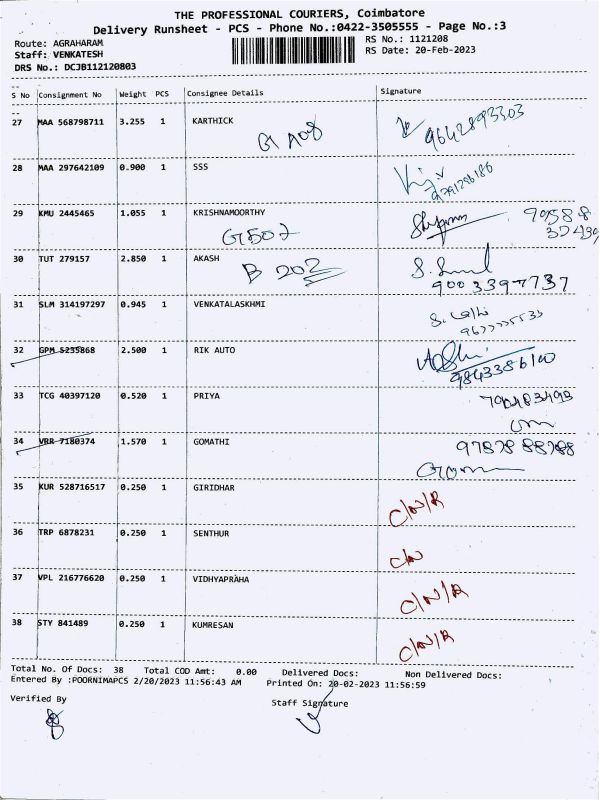 THE PROFESSIONAL COURIERS, Coimbatore
Delivery Runsheet - PCS - Phone No.:0422-3505555 - Page No.:3
Route: AGRAHARAM
RS No.: 1121208
Staff: VENKATESH
RS Date: 20-Feb-2023
DRS No.: DCJB112120803
S No Consignment No Weight PCS Consignee Details Signature
27 MAA 568798711 3.255 1 KARTHICK
9642893303
28 MAA 297642109 0.900 1 SSS
29 KMU 2445465 1.055 1 KRISHNAMOORTHY
G502
30 TUT 279157 2.850 1 AKASH
B 202
9003397737
31 SLM 314197297 0.945 1 VENKATALASKHMI
32 GPM 5235868 2.500 1 RIK AUTO
9843386100
33 TCG 40397120 0.520 1 PRIYA
34 VRR 7180374 1.570 1 GOMATHI
35 KUR 528716517 0.250 1 GIRIDHAR
C/N/R
36 TRP 6878231 0.250 1 SENTHUR
C/N
37 VPL 216776620 0.250 1 VIDHYAPRAHA
C/N/R
38 STY 841489 0.250 1 KUMRESAN
C/N/R
Total No. Of Docs: 38 Total COD Amt: 0.00 Delivered Docs: Non Delivered Docs:
Entered By :POORNIMAPCS 2/20/2023 11:56:43 AM Printed On: 20-02-2023 11:56:59
Verified By
Staff Signature